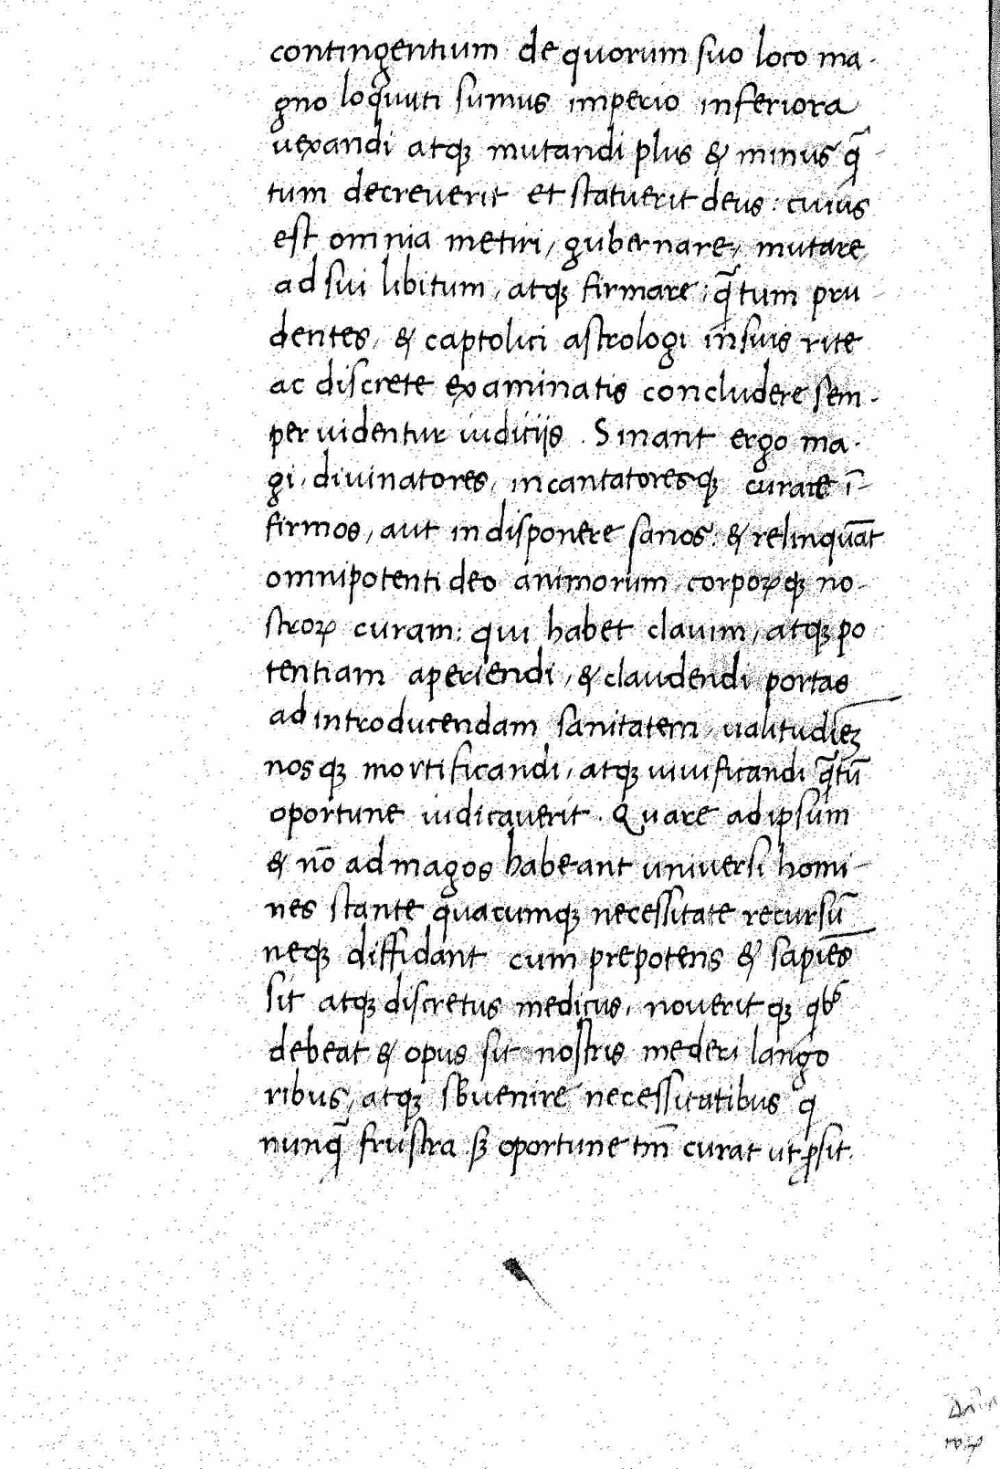 contingentium de quorum suo loco ma-
gno loquuti sumus imperio inferiora
uexandi atqꝫ mutandi plus & minus qᷓ-
tum decreuerit et statuerit deus: cuius
est omnia metiri, gubernare, mutare
ad sui libitum, atqꝫ firmare: qᷓtum pru-
dentes, & captolici astrologi in suis rite
ac discrete examinatis concludere sem-
per uidentur iudiciis. Sinant ergo ma-
gi, diuinatores, incantatoresqꝫ curare ī-
firmos, aut indisponere sanos: & relinquāt
omnipotenti deo animorum, corpoꝝqꝫ no-
stroꝝ curam: qui habet clauim, atqꝫ po
tentiam aperiendi, & claudendi portas
ad introducendam sanitatem, ualitudiēꝫ
nosqꝫ mortificandi, atqꝫ uiuificandi qᷓtū
oportune iudicauerit. Quare ad ipsum
& nō ad magos habeant uniuersi homi-
nes stante quacumqꝫ necessitate recursū
neqꝫ diffidant cum prepotens & sapiēs
sit atqꝫ discretus medicus, nouerit qꝫ qbꝰ
debeat & opus sit nostris mederi lango
ribus, atqꝫ sƀuenire necessitatibus q
nunqᷓ frustra sꝫ oportune tm̄ curat ut ꝓsit.